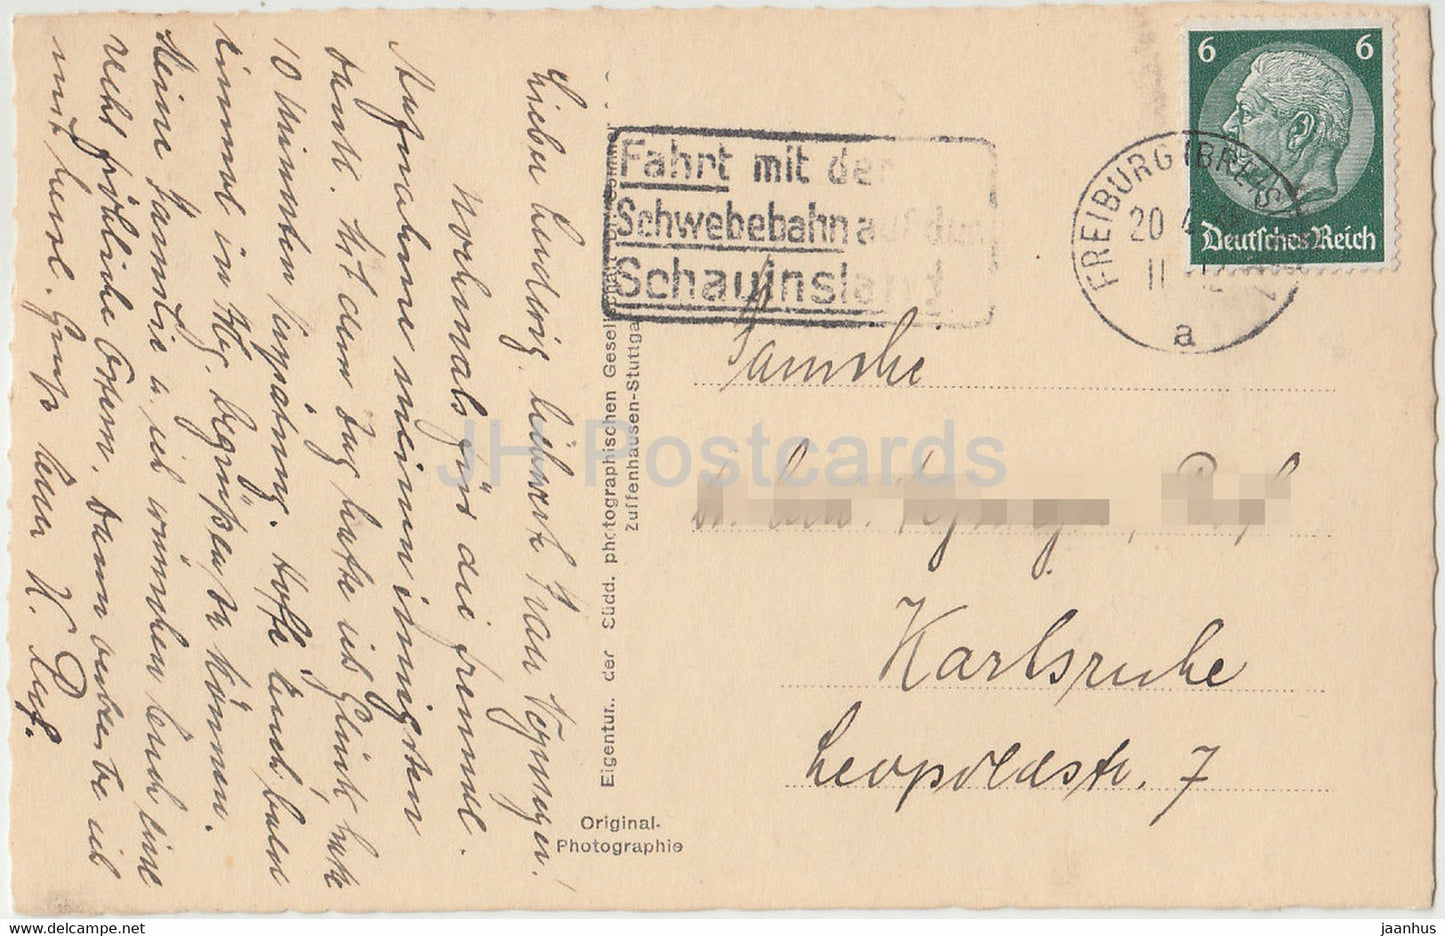 Lieber Ludwig, liebwerte Frau
Nochmals für die freundl.
Aufnahme meinen innigsten
Dank. Mit dem Zug hatte ich Glück, hatte
10 Minuten Verspätung. Hoffe Euch bald
einmal in Fbg. begrüßen zu können.
Meine Familie u. ich wünschen Euch eine
recht fröhliche Ostern. Dann verbleibe ich
mit herzl. Gruß Euer K. Ruf.
Eigentum der Südd. photographischen
Zuffenhausen-Stuttga
Original-
Photographie
Fahrt mit der
Schwebebahn auf den
Schauinsland
6 6
Deutsches Reich
FREIBURG (BREIS
20 4
11 12
a
Familie
Karlsruhe
Leopoldstr. 7
JH Postcards
www.delcampe.net
jaanhus